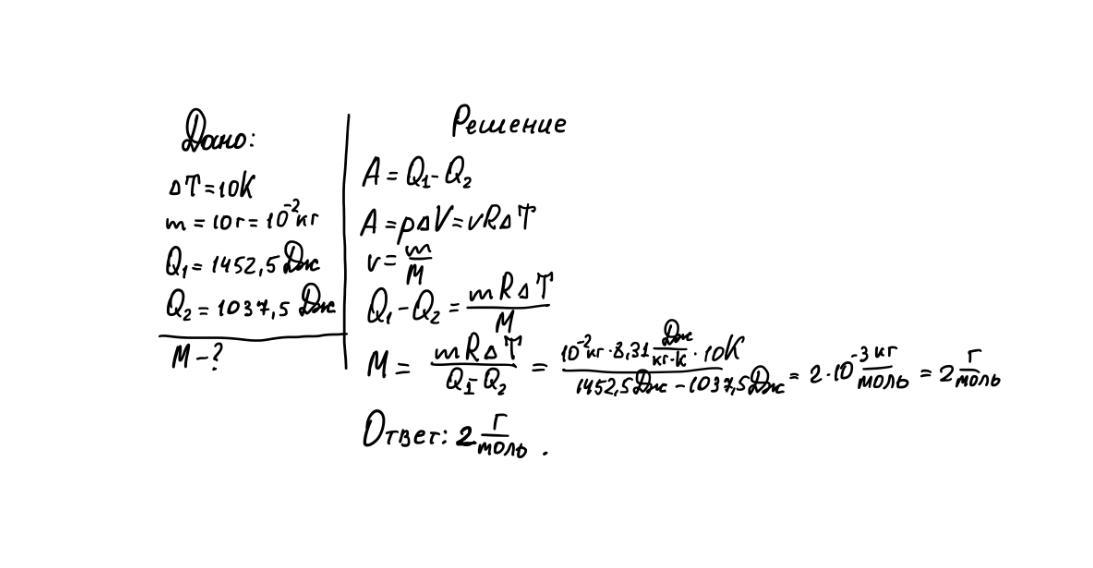 Дано:
ΔT = 10К
m = 10 г = 10⁻² кг
Q₁ = 1452,5 Дж
Q₂ = 1037,5 Дж
M – ?
Решение
A = Q₁ - Q₂
A = pΔV = νRΔT
ν = m/M
Q₁ - Q₂ = mRΔT/M
M = mRΔT/(Q₁ - Q₂) = (10⁻² кг · 8,31 Дж/(кг·К) · 10К)/(1452,5 Дж – 1037,5 Дж) = 2·10⁻³ кг/моль = 2 г/моль
Ответ: 2 г/моль.